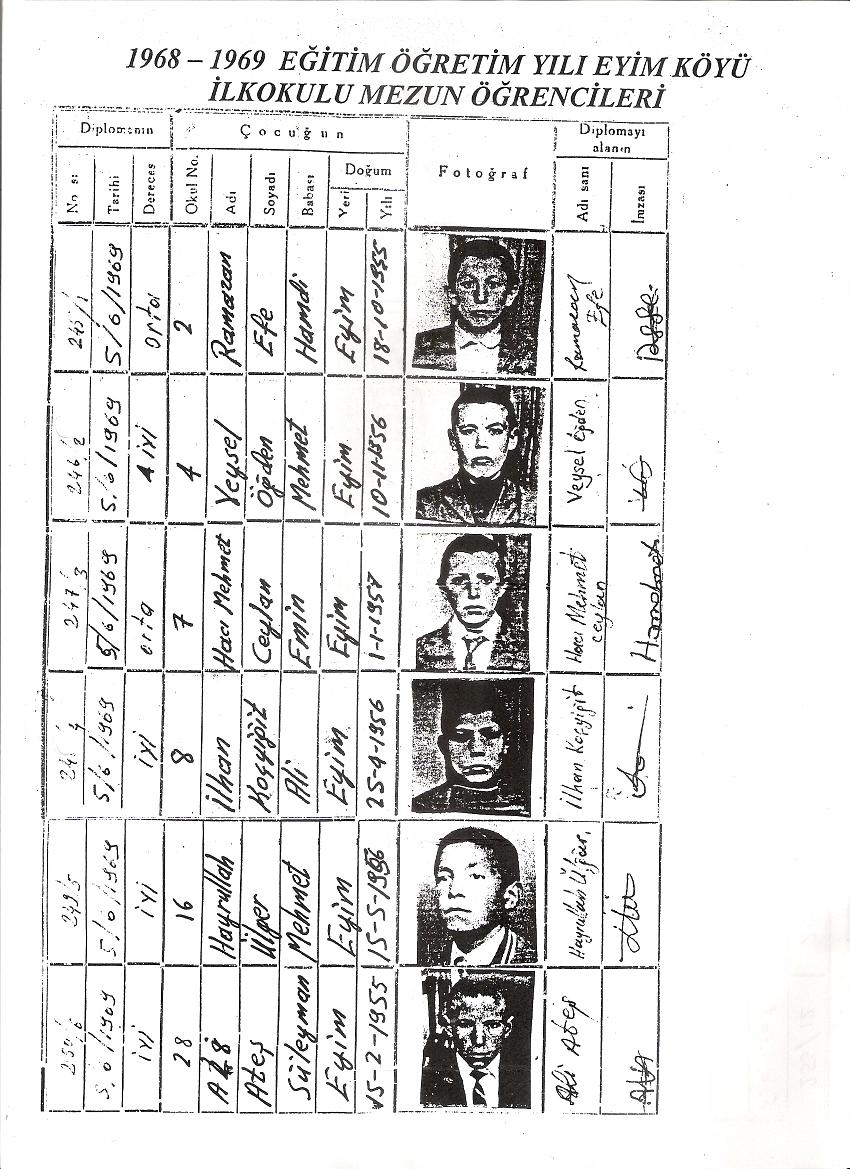 1968 – 1969 EĞİTİM ÖĞRETİM YILI EYİM KÖYÜ
İLKOKULU MEZUN ÖĞRENCİLERİ
Diplomanın Çocuğun Fotoğraf Diplomayı alanın
No sı Tarihi Derecesi Okul No. Adı Soyadı Babası Doğum Yeri Yılı Adı sanı İmzası
245/1 5/6/1969 orta 2 Ramazan Efe Hamdi Eyim 18-10-1955 Ramazan Efe
246/2 5/6/1969 iyi 4 Veysel Öğden Mehmet Eyim 10-11-1956 Veysel Öğden
247/3 5/6/1969 orta 7 Hacı Mehmet Ceylan Emin Eyim 1-1-1957 Hacı Mehmet ceylan
5/6/1969 iyi 8 İlhan Koçyiğit Ali Eyim 25-4-1956 İlhan Koçyiğit
249/5 5/6/1969 iyi 16 Hayrullah Ülger Mehmet Eyim 15-5-1956 Hayrullah
250/6 5/6/1969 iyi 28 Ali Ateş Süleyman Eyim 15-2-1955 Ali Ateş